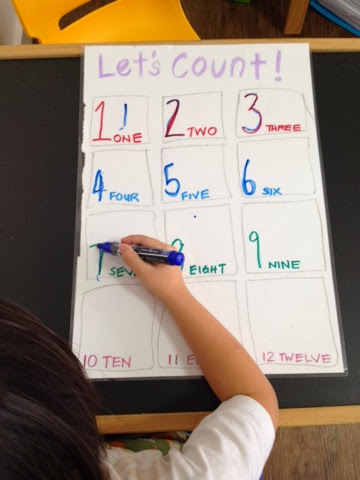 Let's Count!
1! ONE 2 TWO 3 THREE
4 FOUR 5 FIVE 6 SIX
7 8 EIGHT 9 NINE
10 TEN 11 12 TWELVE